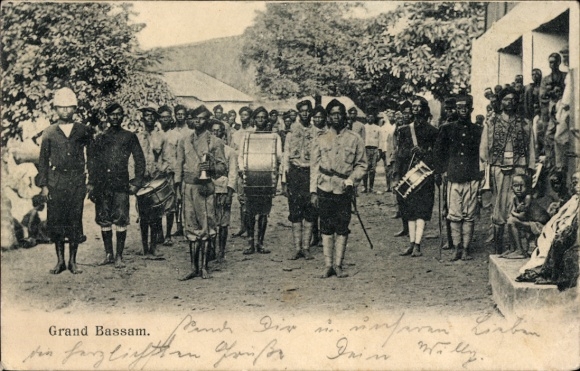 Grand Bassam.
Sende Dir u. unseren Lieben
die herzlichsten Grüße Dein Willy.